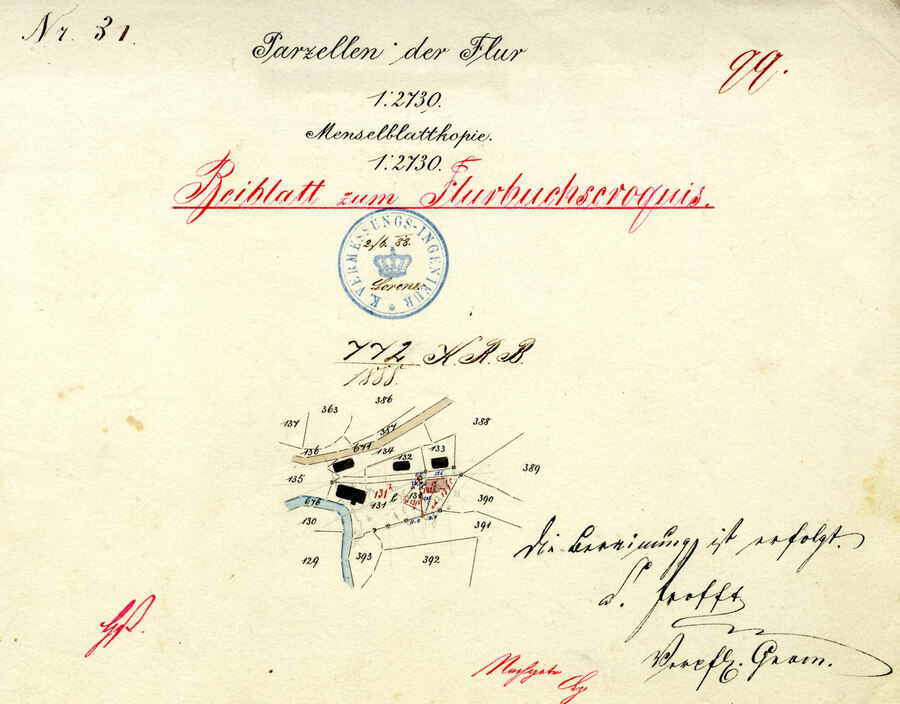 Nr. 31.
Parzellen der Flur
99.
1:2730.
Menselblattkopie.
1:2730.
Beiblatt zum Flurbuchscroquis.
K. VERMESSUNGS-INGENIEUR
2/6. 88.
Lorenz
772 K.R.B.
1888.
386
363
137
387
388
136
671
134
132
133
135
389
131
676
390
130
391
129
393
392
Die Bereinung ist erfolgt.
Verpfl. Geom.